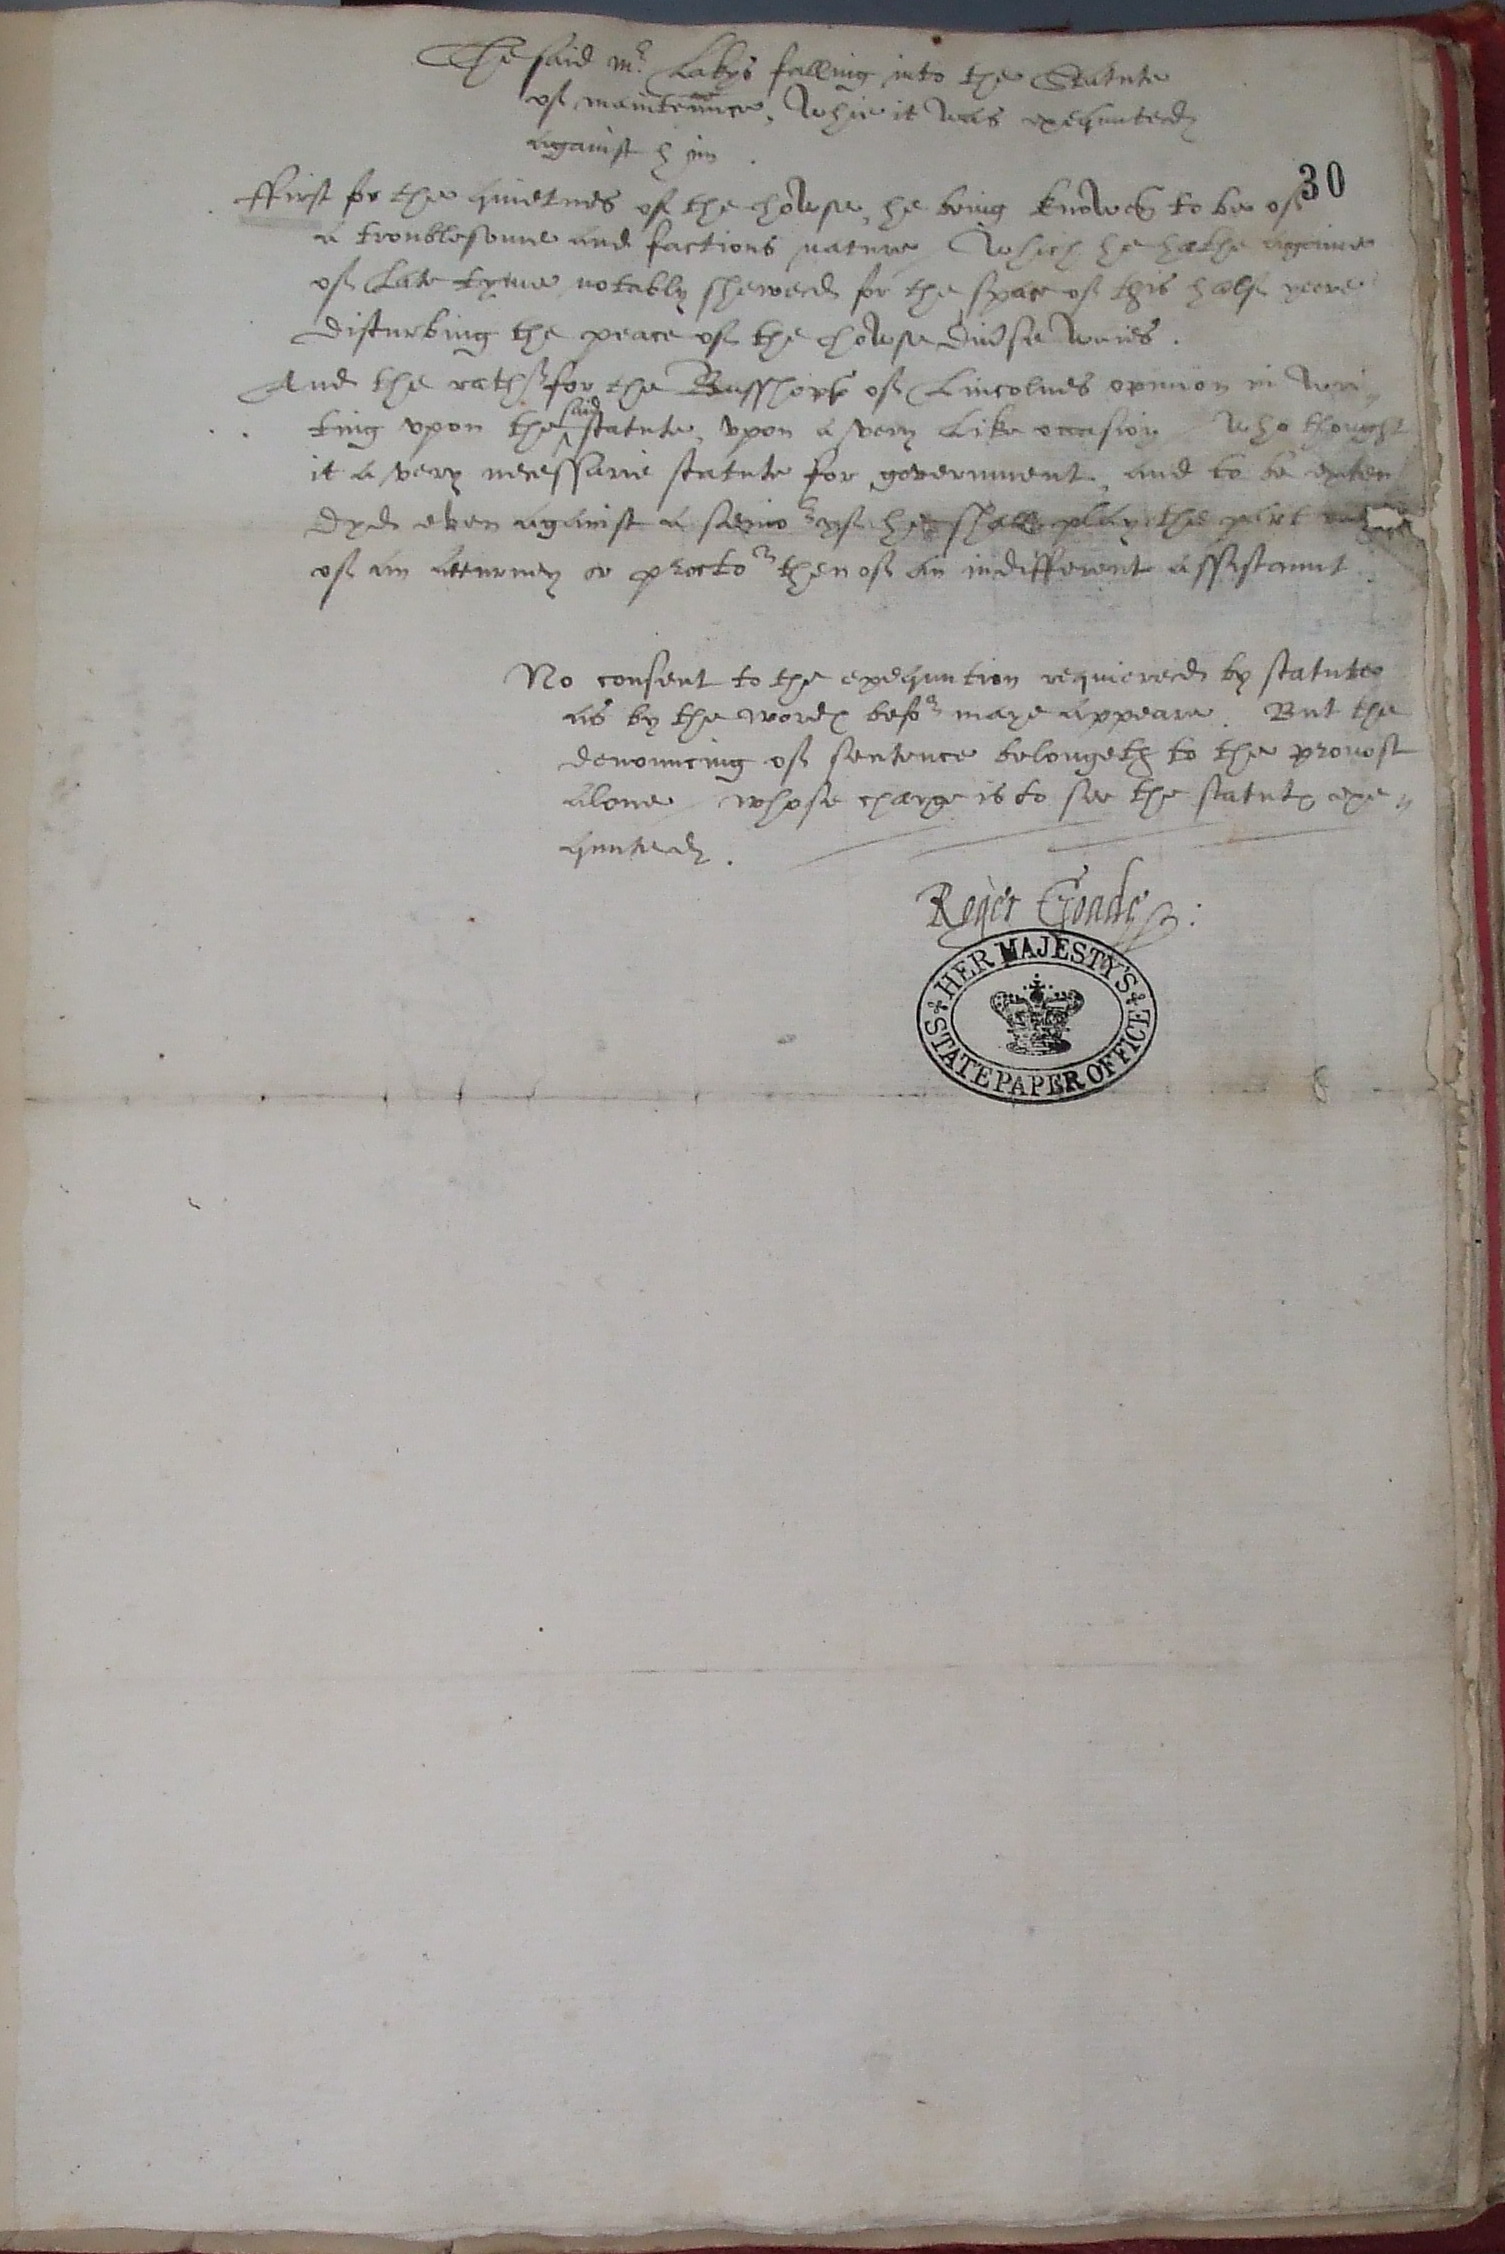 The said mr. Lakys falling into the Statute
of maintennce, Whie it Was exequuted
against him.
30
ffirst for the quietnes of the howse, he being knowen to be of
a troublesome and factious nature, Which he hathe againe
of Late tyme notably shewed for the space of this half yeere
disturbing the peace of the howse diverse Waies.
And the rather for the Busshopp of Lincolnes opinion in Wri„
ting vpon the said statute, vpon a very Like occasion Who thought
it a very necessarie statute for government, and to be exten
dyd even against a senior yf he shall play the part
of an atturney or proctor then of an indifferent assistaunt.
No consent to the exequution requiered by statute
as by the wordes before maye appeare. But the
denouncing of sentence belongeth to the provost
alone, whose charge is to see the statutes exe„
quuted.
Roger Goade:
HER MAJESTY'S
STATE PAPER OFFICE